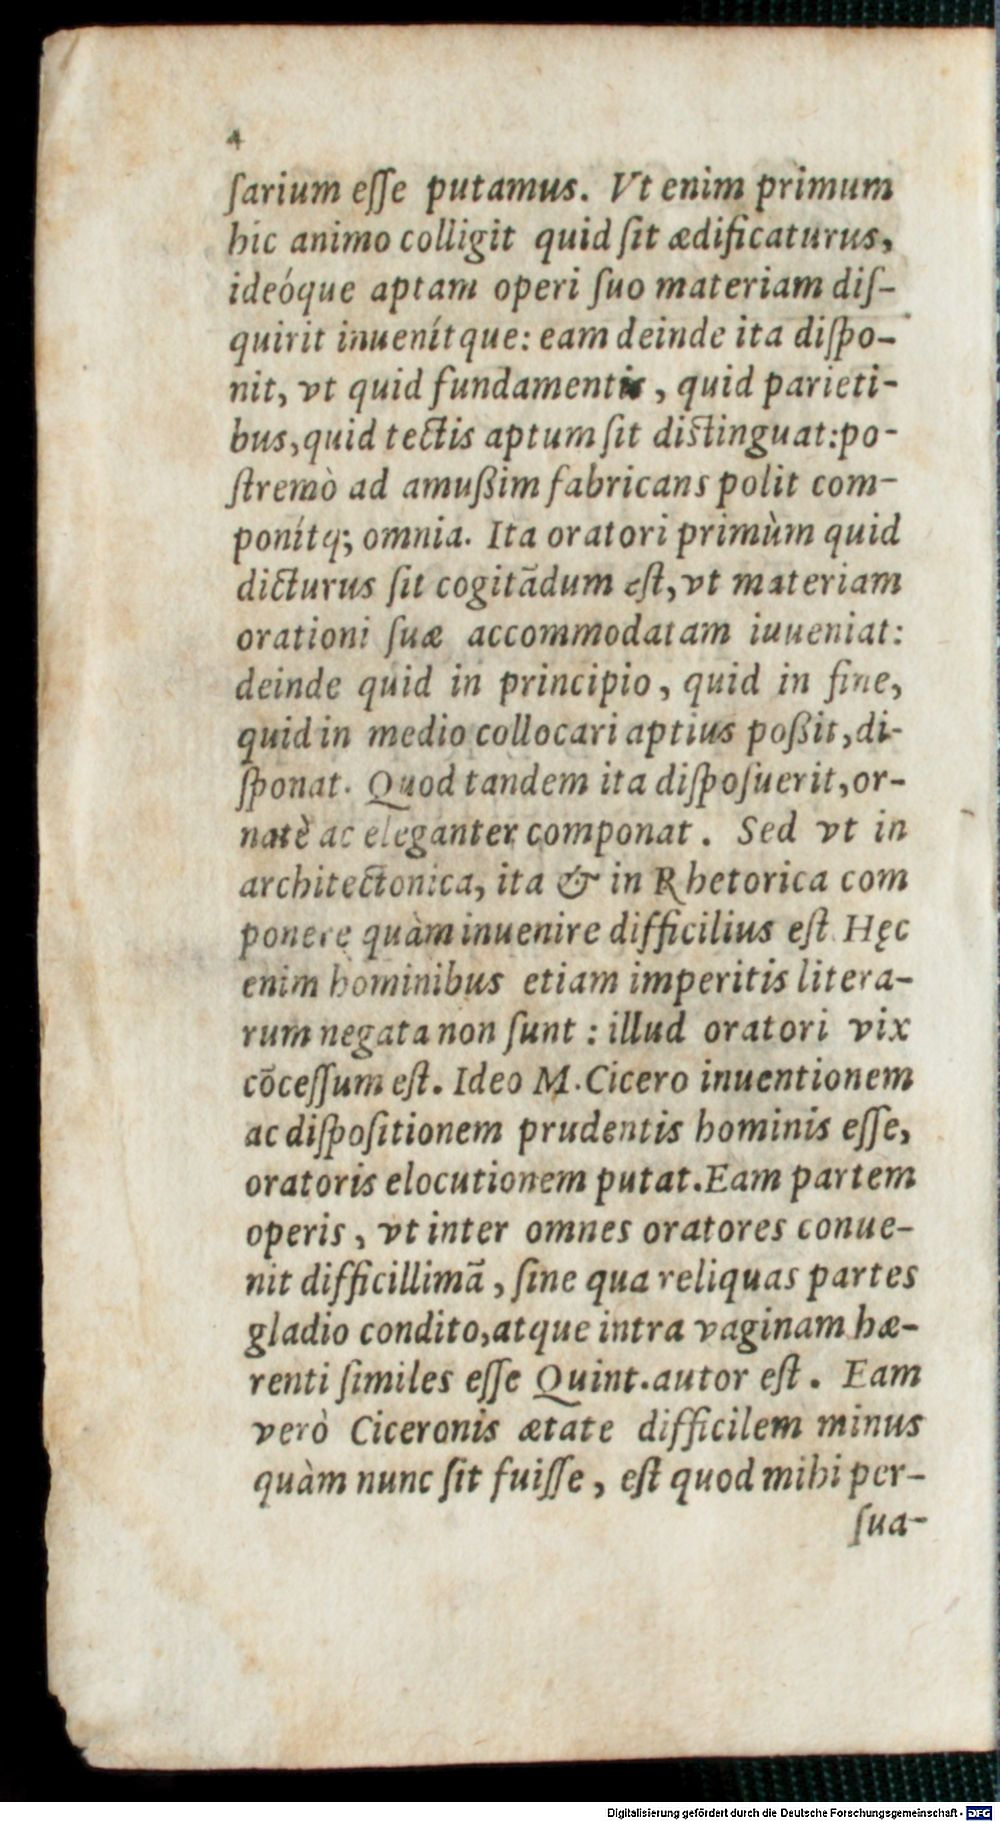 4
ſarium eſſe putamus. Vt enim primum
hic animo colligit quid ſit ædificaturus,
ideóque aptam operi ſuo materiam diſ-
quirit inuenítque: eam deinde ita diſpo-
nit, vt quid fundamentis, quid parieti-
bus, quid tectis aptum ſit diſtinguat: po-
ſtremò ad amußim fabricans polit com-
ponítq; omnia. Ita oratori primùm quid
dicturus ſit cogitādum eſt, vt materiam
orationi ſuæ accommodatam iuueniat:
deinde quid in principio, quid in fine,
quid in medio collocari aptius poßit, di-
ſponat. Quod tandem ita diſpoſuerit, or-
natè ac eleganter componat. Sed vt in
architectonica, ita & in Rhetorica com
ponere quàm inuenire difficilius eſt. Hęc
enim hominibus etiam imperitis litera-
rum negata non ſunt: illud oratori vix
cōceſſum eſt. Ideo M. Cicero inuentionem
ac diſpoſitionem prudentis hominis eſſe,
oratoris elocutionem putat. Eam partem
operis, vt inter omnes oratores conue-
nit difficillimā, ſine qua reliquas partes
gladio condito, atque intra vaginam hæ-
renti ſimiles eſſe Quint. autor eſt. Eam
verò Ciceronis ætate difficilem minus
quàm nunc ſit fuiſſe, eſt quod mihi per-
ſua-
Digitalisierung gefördert durch die Deutsche Forschungsgemeinschaft - DFG